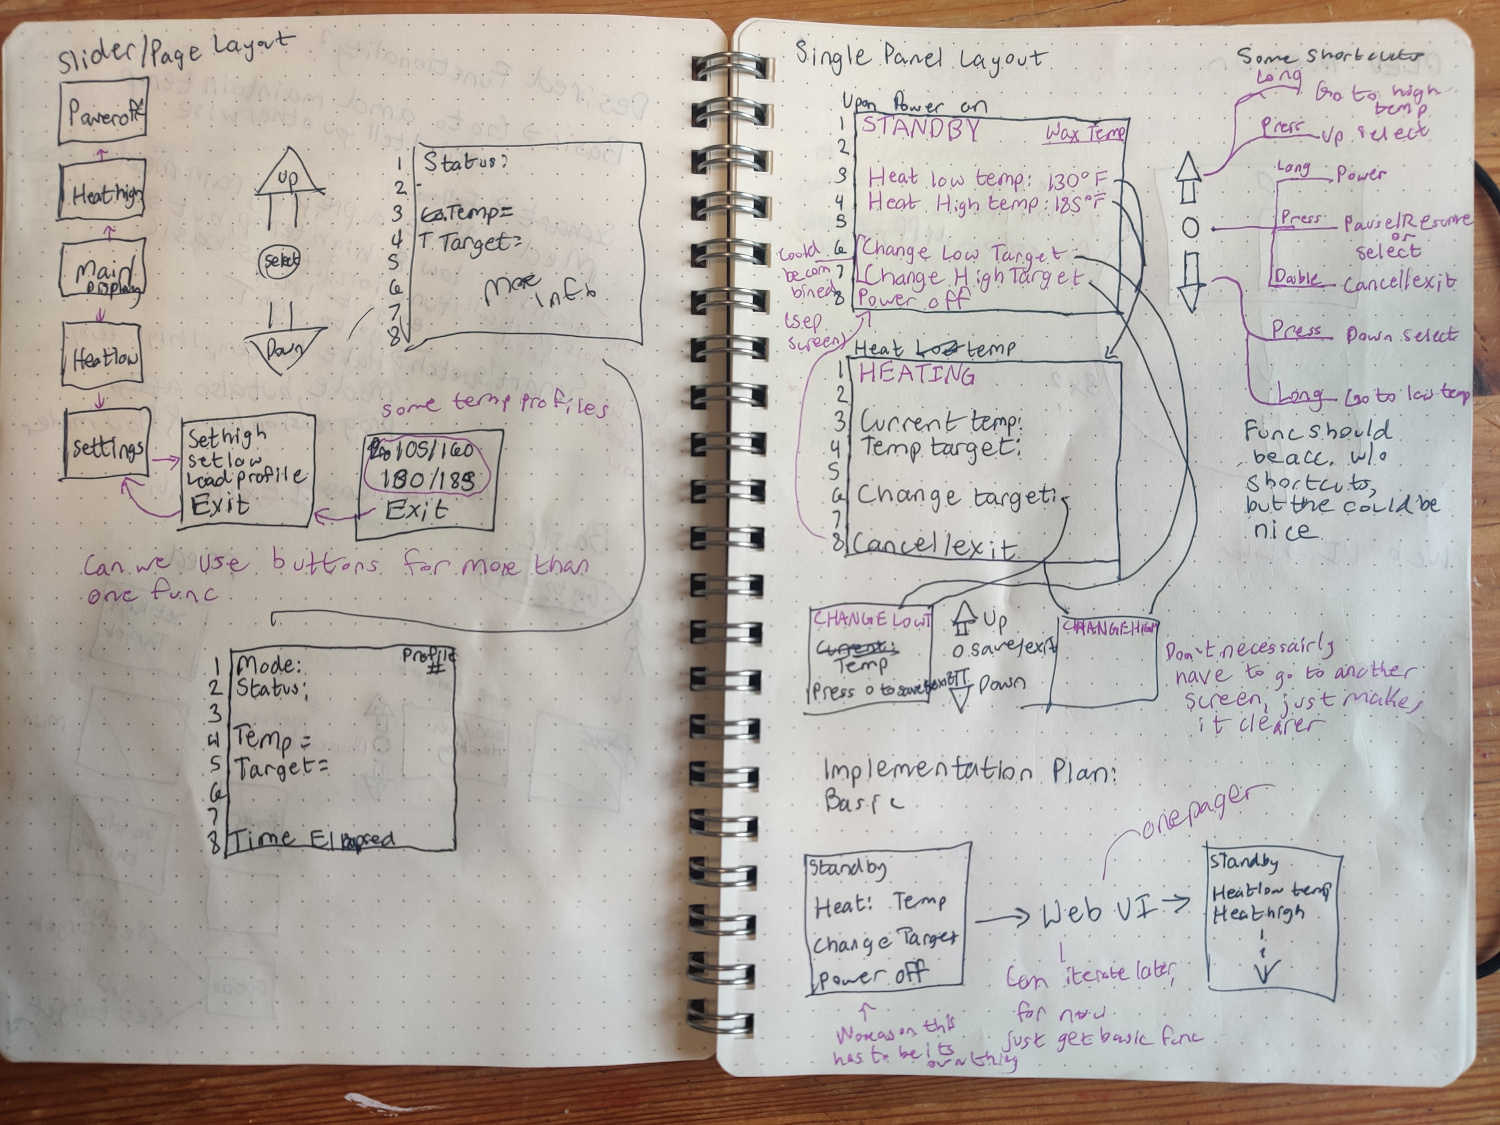 Slider/Page Layout
Poweroff
Heat high
Main
Display
Heat low
Settings
Up
Select
Down
1 Status:
2
3 Temp=
4 T Target=
5
6
7
8
More
Info
Set high
set low
Load profile
Exit
some temp profiles
105/160
130/185
Exit
Can we use buttons for more than
one func
1 Mode:
Profile
#
2 Status:
3
4 Temp=
5 Target=
6
7
8 Time Elapsed
Single Panel Layout
Upon Power on
1 STANDBY
Wax Temp
2
3 Heat low temp: 130°F
4 Heat High temp: 185°F
5
6 Change Low Target
7 Change High Target
8 Power off
Could
be com
bined
(sep
screen)
Heat temp
1 HEATING
2
3 Current temp:
4 Temp target:
5
6 Change target:
7
8 Cancel/exit
CHANGE LOWT
Current:
Temp
Press o to save/exit
Up
o save/exit
Down
CHANGEHIGH
Don't necessairly
have to go to another
screen, just makes
it clearer
Some shortcuts
Long
Go to high
temp
Press Up select
Long Power
Press Pause/Resume
or
select
Double Cancel/exit
Press Down select
Long Go to low temp
Func should
be acc. w/o
shortcuts,
but the could be
nice
Implementation Plan:
Basic
Standby
Heat: Temp
Change Target
Power off
Web UI
onepager
Standby
Heatlow temp
Heathigh
Can iterate later,
for now
just get basic func
this
has to be its
own thing